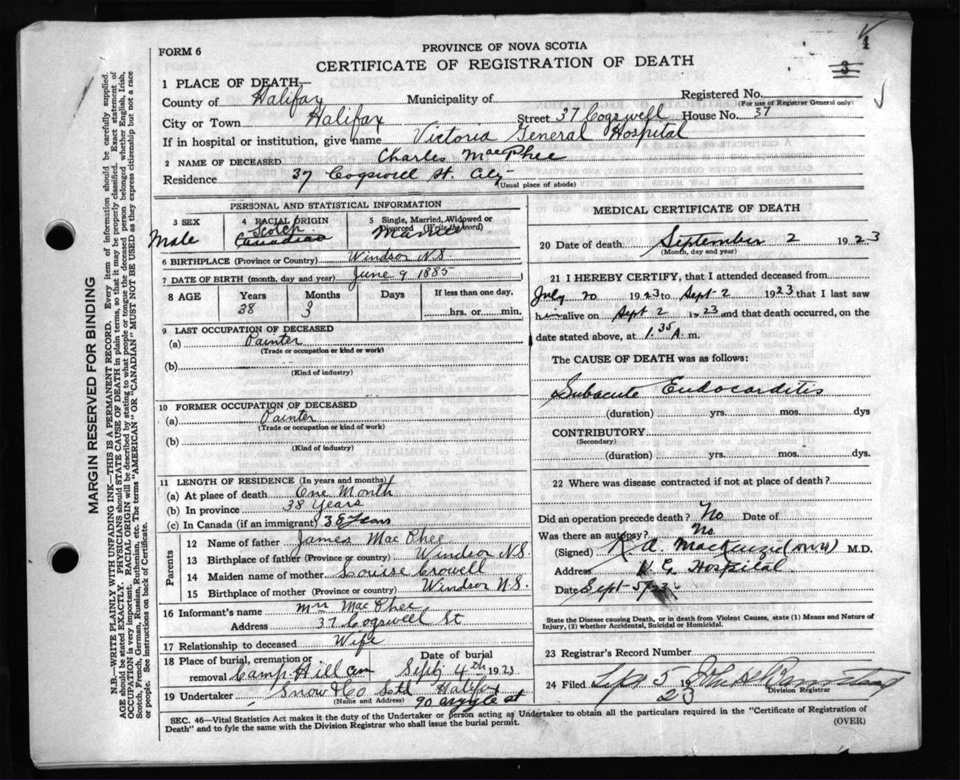 4
3
FORM 6
PROVINCE OF NOVA SCOTIA
CERTIFICATE OF REGISTRATION OF DEATH
1 PLACE OF DEATH—
County of Halifax Municipality of Registered No.
(For use of Registrar General only)
City or Town Halifax Street 37 Cogswell House No. 37
If in hospital or institution, give name Victoria General Hospital
2 NAME OF DECEASED Charles MacPhee
Residence 37 Cogswell St. City
(Usual place of abode)
PERSONAL AND STATISTICAL INFORMATION
3 SEX Male
4 RACIAL ORIGIN Scotch Canadian
5 Single, Married, Widowed or Divorced (Write the word) Married
6 BIRTHPLACE (Province or Country) Windsor N.S.
7 DATE OF BIRTH (month, day and year) June 9 1885
8 AGE Years Months Days If less than one day.
38 3 hrs. or min.
9 LAST OCCUPATION OF DECEASED
(a) Painter
(Trade or occupation or kind of work)
(b)
(Kind of industry)
10 FORMER OCCUPATION OF DECEASED
(a) Painter
(Trade or occupation or kind of work)
(b)
(Kind of industry)
11 LENGTH OF RESIDENCE (In years and months)
(a) At place of death One Month
(b) In province 38 Years
(c) In Canada (if an immigrant) 38 Years
Parents
12 Name of father James MacPhee
13 Birthplace of father (Province or Country) Windsor N.S.
14 Maiden name of mother Louise Crowell
15 Birthplace of mother (Province or Country) Windsor N.S.
16 Informant's name Mrs MacPhee
Address 37 Cogswell St
17 Relationship to deceased Wife
18 Place of burial, cremation or removal Camp Hill Cem Date of burial Sept 4th 1923
19 Undertaker Snow & Co Ltd Halifax
(Name and Address) 90 Argyle St
MEDICAL CERTIFICATE OF DEATH
20 Date of death September 2 1923
(Month, day and year)
21 I HEREBY CERTIFY, that I attended deceased from
July 20 1923 to Sept 2 1923 that I last saw
him alive on Sept 2 1923 and that death occurred, on
date stated above, at 1.35 A. m.
The CAUSE OF DEATH was as follows:
Subacute Endocarditis
(duration) yrs. mos. dys
CONTRIBUTORY
(Secondary)
(duration) yrs. mos. dys.
22 Where was disease contracted if not at place of death?
Did an operation precede death? No Date of
Was there an autopsy? No
(Signed) MacKenzie M.D.
Address V.G. Hospital
Date Sept
State the Disease causing Death, or in death from Violent Causes, state (1) Means and Nature of
Injury, (2) whether Accidental, Suicidal or Homicidal.
23 Registrar's Record Number
24 Filed Sept 5 1923
Division Registrar
SEC. 46—Vital Statistics Act makes it the duty of the Undertaker or person acting as Undertaker to obtain all the particulars required in the "Certificate of Registration of
Death" and to fyle the same with the Division Registrar who shall issue the burial permit.
(OVER)
MARGIN RESERVED FOR BINDING
N.B.—WRITE PLAINLY WITH UNFADING INK—THIS IS A PERMANENT RECORD. Every item of information should be carefully supplied.
AGE should be stated EXACTLY. PHYSICIANS should STATE CAUSE OF DEATH in plain terms, so that it may be properly classified. Exact statement of
OCCUPATION is very important. RACIAL ORIGIN will be described by stating to what people or tongue the deceased person belonged whether English, Irish,
Scotch, French, German, Russian, Ruthenian, etc. The terms "AMERICAN" OR "CANADIAN" MUST NOT BE USED as they express citizenship but not a race
or people. See instructions on back of Certificate.